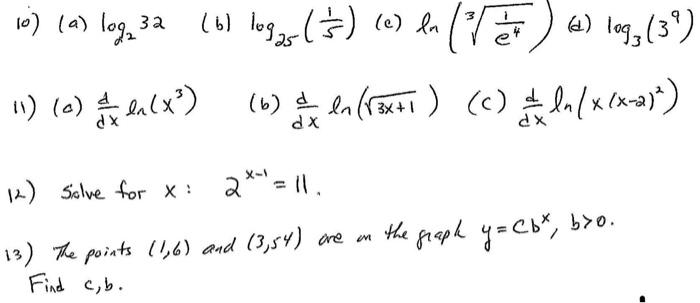 10) (a) log₂ 32 (b) log₂₅ (1/5) (c) ln (∛(1/e⁴)) (d) log₃(3⁹)
11) (a) d/dx ln(x³) (b) d/dx ln(√(3x+1)) (c) d/dx ln(x(x-2)²)
12) Solve for x : 2ˣ⁻¹ = 11.
13) The points (1,6) and (3,54) are on the graph y = Cbˣ, b>0.
Find c,b.